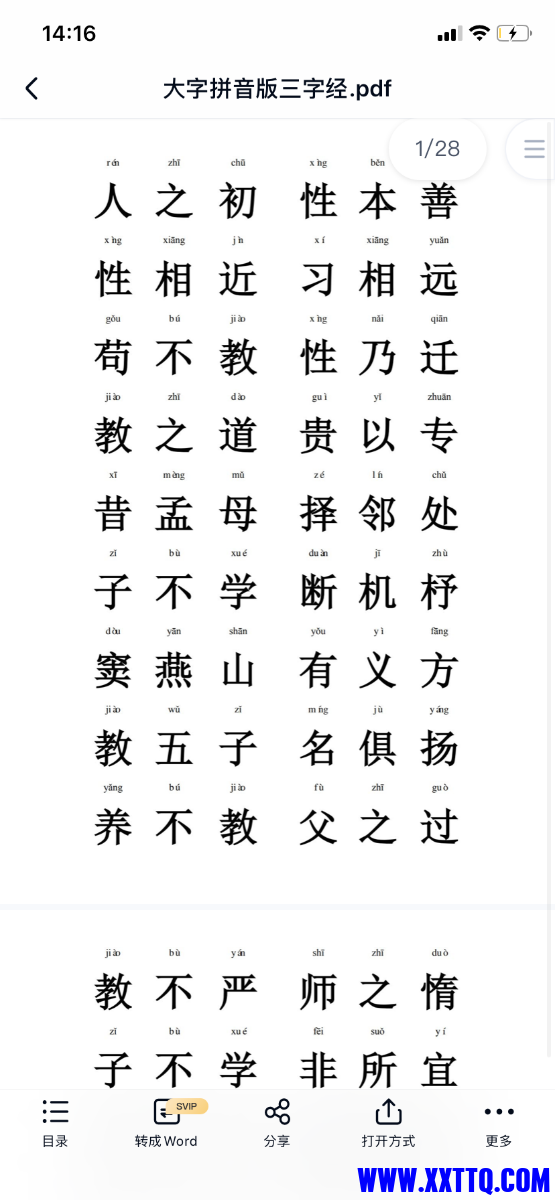 14:16
大字拼音版三字经.pdf
1/28
rén zhī chū xìng běn
人之初 性本善
xìng xiāng jìn xí xiāng yuǎn
性相近 习相远
gǒu bú jiào xìng nǎi qiān
苟不教 性乃迁
jiào zhī dào guì yǐ zhuān
教之道 贵以专
xī mèng mǔ zé lín chǔ
昔孟母 择邻处
zǐ bù xué duàn jī zhù
子不学 断机杼
dòu yān shān yǒu yì fāng
窦燕山 有义方
jiào wǔ zǐ míng jù yáng
教五子 名俱扬
yǎng bú jiào fù zhī guò
养不教 父之过
jiào bù yán shī zhī duò
教不严 师之惰
zǐ bù xué fēi suǒ yí
子不学 非所宜
SVIP
目录 转成Word 分享 打开方式 更多
WWW.XXTTQ.COM